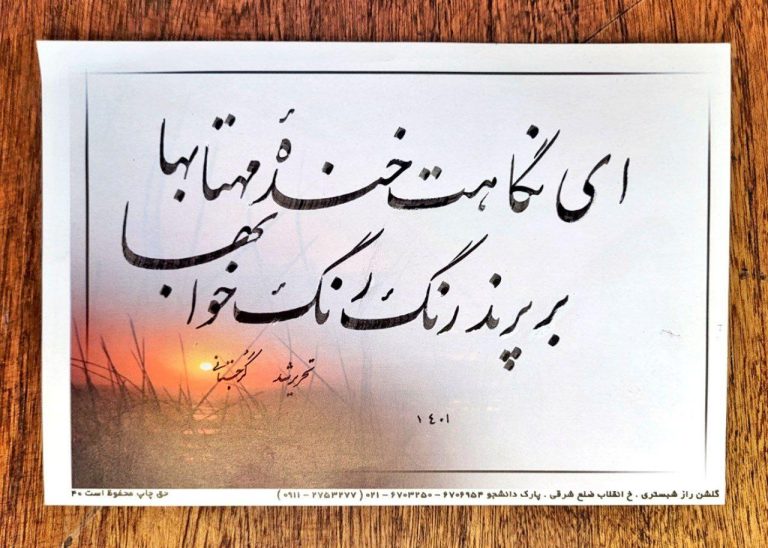 ای نگاهت خندهٔ مهتابها
بر پرند رنگ رنگ خوابها
تحریر شد
۱۴۰۱
گلشن راز شبستری . خ انقلاب ضلع شرقی . پارک دانشجو ۶۷۰۶۹۵۴ - ۶۷۰۳۲۵۰ - ۰۲۱ ( ۲۷۵۳۲۷۷ - ۰۹۱۱ )
حق چاپ محفوظ است ۴۰